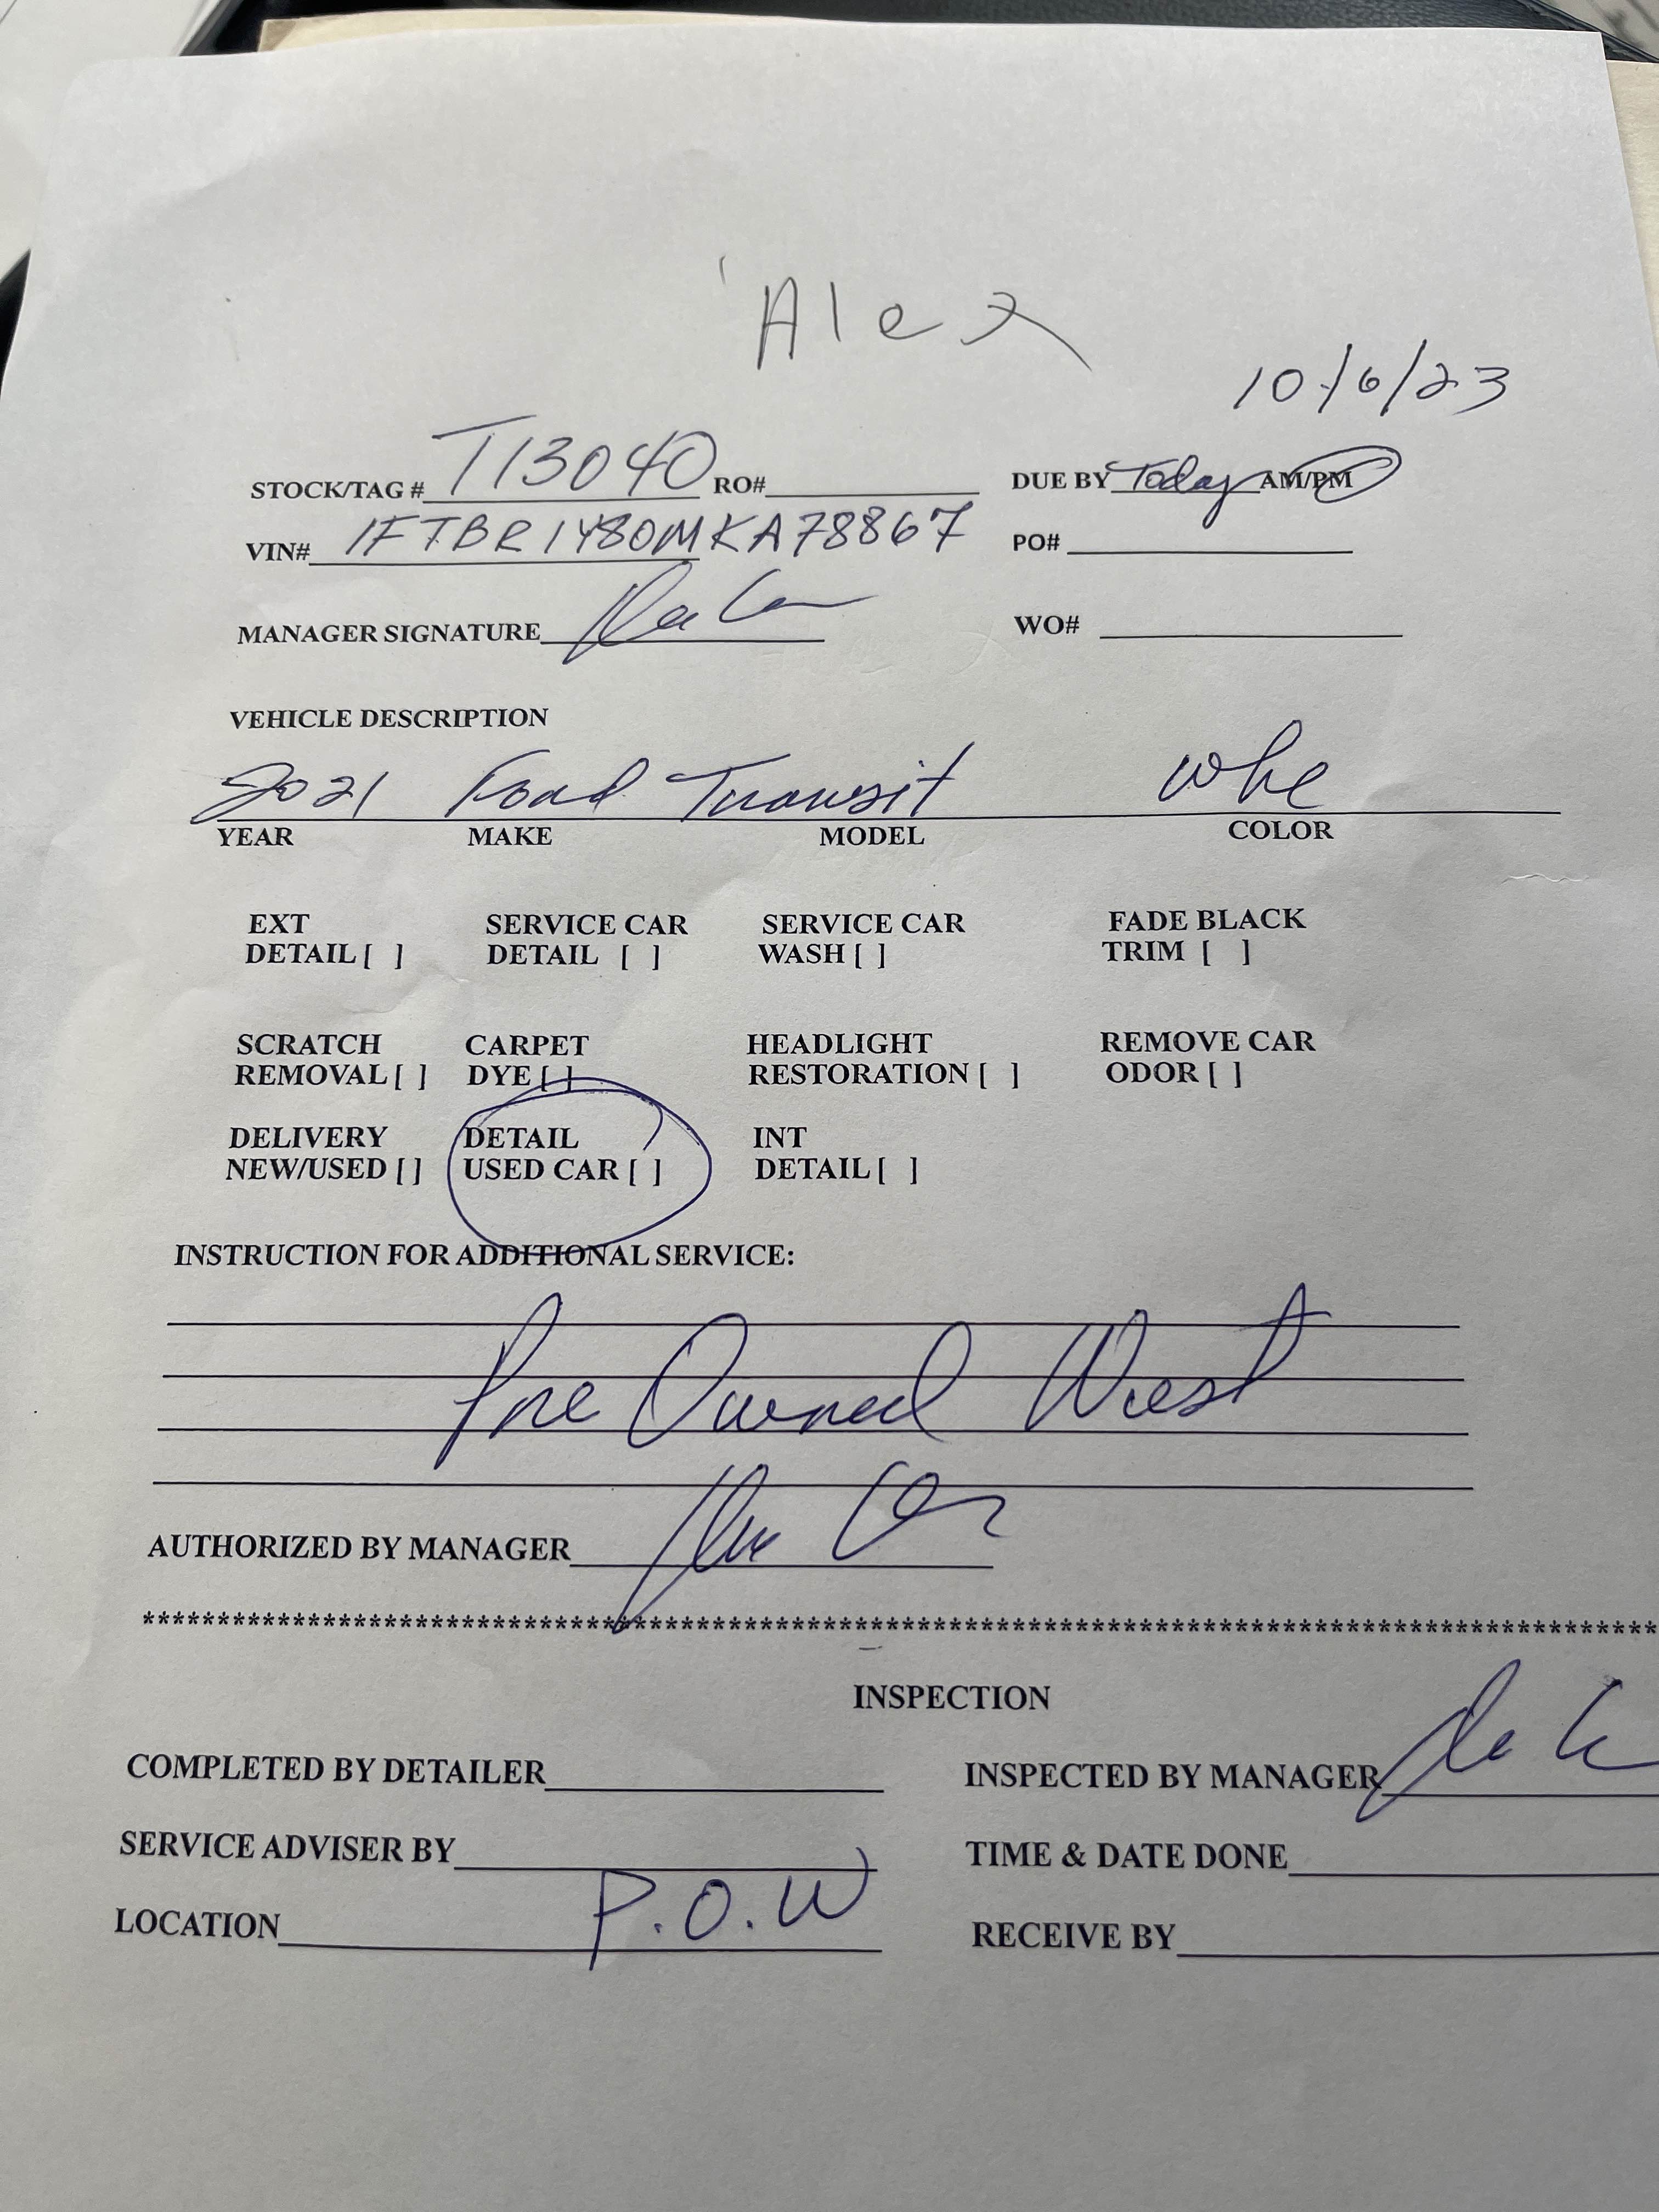 Alex
10/6/23
STOCK/TAG # T13040 RO# DUE BY Today AM/PM
VIN# 1FTBR1Y80MKA78867 PO#
MANAGER SIGNATURE WO#
VEHICLE DESCRIPTION
2021 Ford Transit whe
YEAR MAKE MODEL COLOR
EXT SERVICE CAR SERVICE CAR FADE BLACK
DETAIL [ ] DETAIL [ ] WASH [ ] TRIM [ ]
SCRATCH CARPET HEADLIGHT REMOVE CAR
REMOVAL [ ] DYE [ ] RESTORATION [ ] ODOR [ ]
DELIVERY DETAIL INT
NEW/USED [ ] USED CAR [ ] DETAIL [ ]
INSTRUCTION FOR ADDITIONAL SERVICE:
Pre Owned West
AUTHORIZED BY MANAGER
****************************************************************************************************
INSPECTION
COMPLETED BY DETAILER INSPECTED BY MANAGER
SERVICE ADVISER BY TIME & DATE DONE
LOCATION P.O.W RECEIVE BY